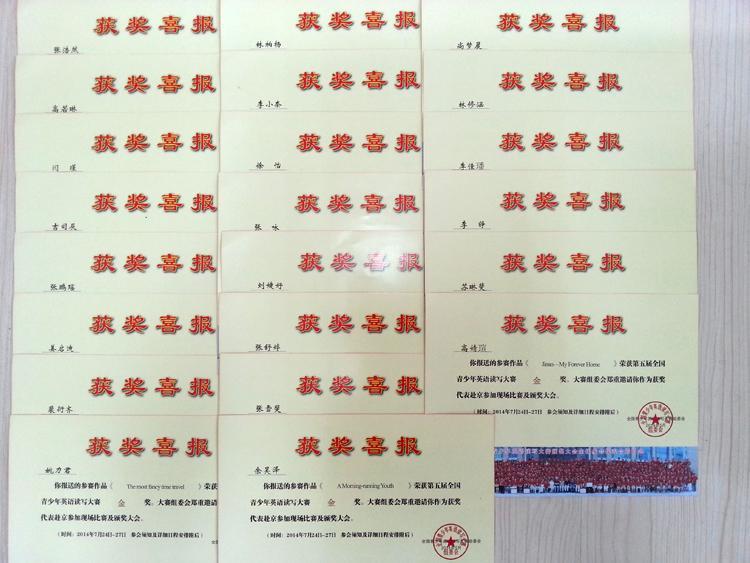 获奖喜报
张浩然
获奖喜报
高若琳
获奖喜报
闫瑾
获奖喜报
获奖喜报
张鹏瑶
获奖喜报
姜启
获奖喜报
裴衍齐
获奖喜报
姚力君
你报送的参赛作品《 The most fancy time travel 》荣获第五届全国
青少年英语读写大赛 金 奖。大赛组委会郑重邀请你作为获奖
代表赴京参加现场比赛及颁奖大会。
（时间：2014年7月24日-27日 参会须知及详细日程安排附后）
获奖喜报
林柏杨
获奖喜报
李小乔
获奖喜报
徐怡
获奖喜报
张咏
获奖喜报
刘婕妤
获奖喜报
张舒婷
获奖喜报
获奖喜报
余昊泽
你报送的参赛作品《 A Morning-running Youth 》荣获第五届全国
青少年英语读写大赛 金 奖。大赛组委会郑重邀请你作为获奖
代表赴京参加现场比赛及颁奖大会。
（时间：2014年7月24日-27日 参会须知及详细日程安排附后）
获奖喜报
尚梦晨
获奖喜报
林修涵
获奖喜报
获奖喜报
李铮
获奖喜报
苏琳斐
获奖喜报
你报送的参赛作品《 Jinan—My Forever Home 》荣获第五届全国
青少年英语读写大赛 金 奖。大赛组委会郑重邀请你作为获奖
代表赴京参加现场比赛及颁奖大会。
（时间：2014年7月24日-27日 参会须知及详细日程安排附后）